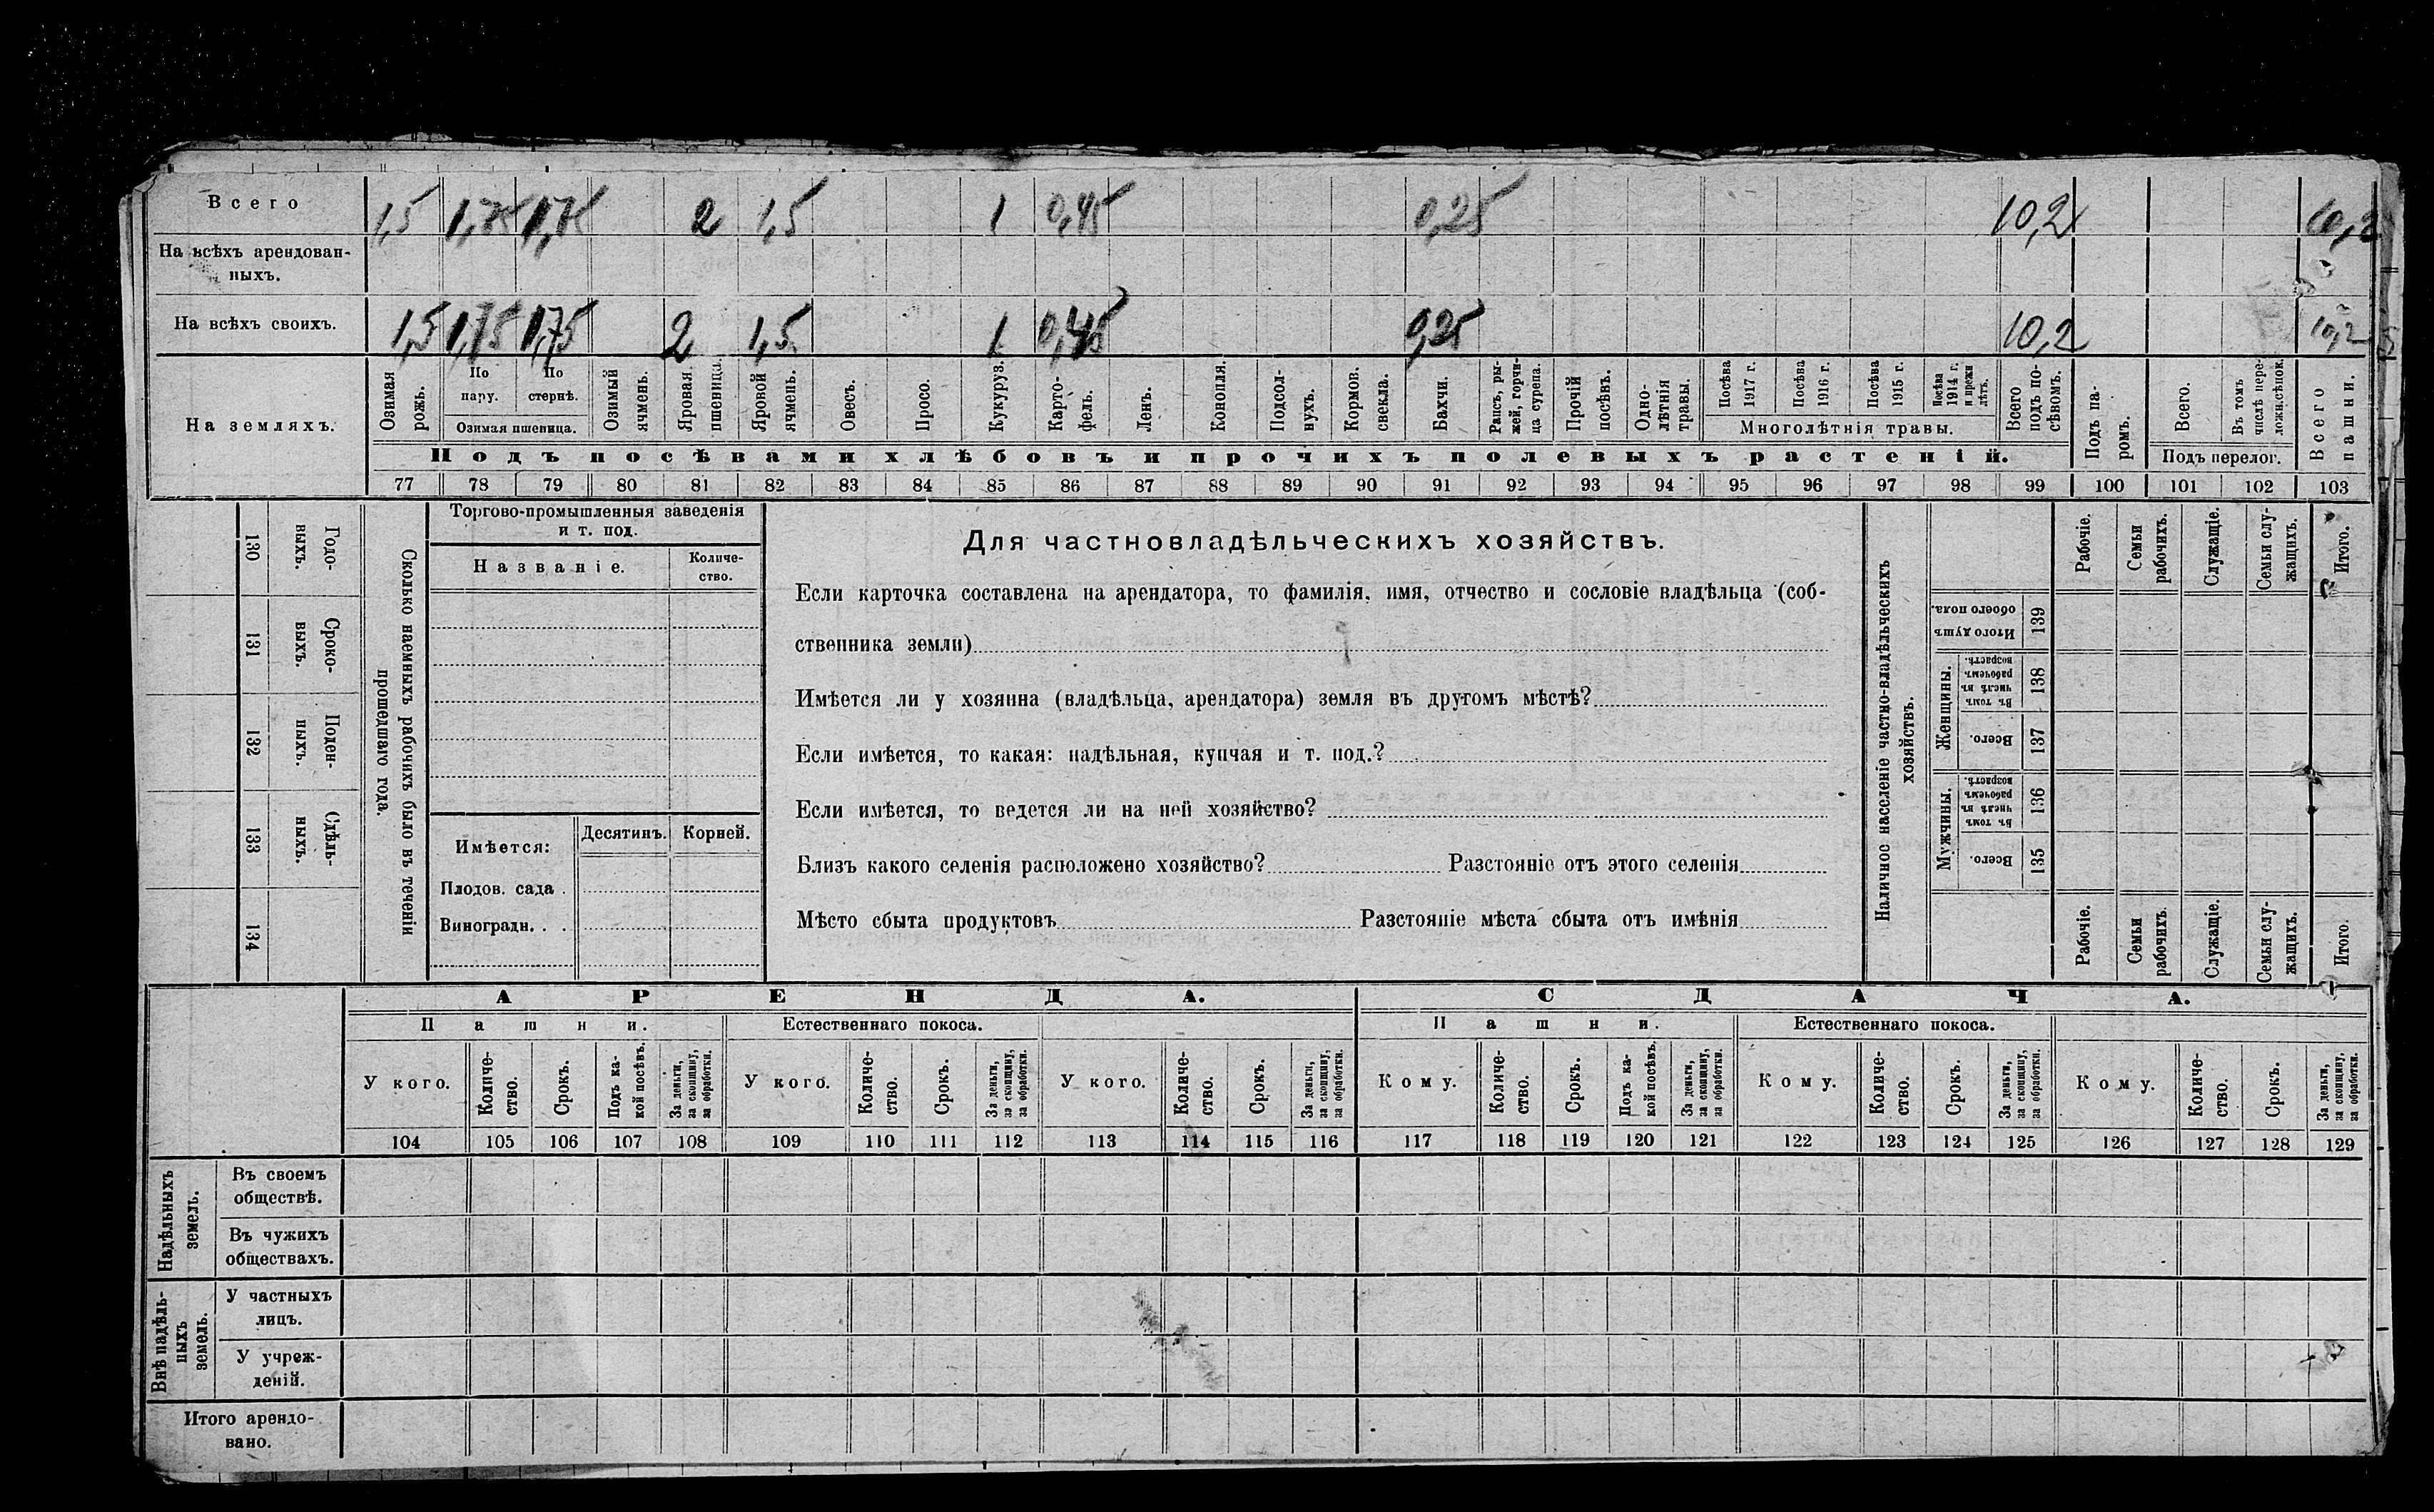 Всего 1,5 1,75 1,75 2 1,5 1 0,45 0,25 10,2 10,2
На всѣхъ арендован-
ныхъ.
На всѣхъ своихъ. 1,5 1,75 1,75 2 1,5 1 0,45 0,25 10,2 10,2
На земляхъ.
Озимая рожь.
По пару.
По стернѣ.
Озимая пшеница.
Озимый ячмень.
Яровая пшеница.
Яровой ячмень.
Овесъ.
Просо.
Кукуруз.
Карто-
фель.
Ленъ.
Конопля.
Подсол-
нухъ.
Кормов. свекла.
Бахчи.
Рапсъ, ры-
жей, горчи-
ца сурепа.
Прочій посѣвъ.
Одно-
лѣтнія травы.
Посѣва 1917 г.
Посѣва 1916 г.
Посѣва 1915 г.
Посѣва 1914 г. и прежн лѣтъ.
Многолѣтнія травы.
Всего подъ по-
сѣвомъ.
Подъ па-
ромъ.
Всего.
Въ томъ числѣ пере-
ложн.сѣнок.
Подъ перелог.
Всего пашни.
Подъ посѣвами хлѣбовъ и прочихъ полевыхъ растеній.
77 78 79 80 81 82 83 84 85 86 87 88 89 90 91 92 93 94 95 96 97 98 99 100 101 102 103
Сколько наемныхъ рабочихъ было въ теченіи
прошедшаго года.
Годо-
выхъ.
130
Сроко-
выхъ.
131
Поден-
ныхъ.
132
Сдѣль-
ныхъ.
133
134
Торгово-промышленныя заведенія
и т. под.
Названіе.
Количе-
ство.
Имѣется:
Десятинъ.
Корней.
Плодов. сада .
Виноградн. . .
Для частновладѣльческихъ хозяйствъ.
Если карточка составлена на арендатора, то фамилія, имя, отчество и сословіе владѣльца (соб-
ственника земли)
Имѣется ли у хозяина (владѣльца, арендатора) земля въ другомъ мѣстѣ?
Если имѣется, то какая: надѣльная, купчая и т. под.?
Если имѣется, то ведется ли на ней хозяйство?
Близъ какого селенія расположено хозяйство? Разстояніе отъ этого селенія
Мѣсто сбыта продуктовъ Разстояніе мѣста сбыта отъ имѣнія
Наличное населеніе частно-владѣльческихъ
хозяйствъ.
Рабочіе.
Семьи рабочихъ.
Служащіе.
Семьи слу-
жащихъ.
Итого.
Итого душъ обоего пола.
139
Женщины.
Въ томъ числѣ въ рабочемъ возрастѣ.
138
Всего.
137
Мужчины.
Въ томъ числѣ въ рабочемъ возрастѣ.
136
Всего.
135
Рабочіе.
Семьи рабочихъ.
Служащіе.
Семьи слу-
жащихъ.
Итого.
АРЕНДА. СДАЧА.
Пашни. Естественнаго покоса. Пашни. Естественнаго покоса.
У кого.
Количе-
ство.
Срокъ.
Подъ ка-
кой посѣвъ.
За деньги,
за скопщину,
за обработки.
У кого.
Количе-
ство.
Срокъ.
За деньги,
за скопщину,
за обработки.
У кого.
Количе-
ство.
Срокъ.
За деньги,
за скопщину,
за обработки.
Кому.
Количе-
ство.
Срокъ.
Подъ ка-
кой посѣвъ.
За деньги,
за скопщину,
за обработки.
Кому.
Количе-
ство.
Срокъ.
За деньги,
за скопщину,
за обработки.
Кому.
Количе-
ство.
Срокъ.
За деньги,
за скопщину,
за обработки.
104 105 106 107 108 109 110 111 112 113 114 115 116 117 118 119 120 121 122 123 124 125 126 127 128 129
Надѣльныхъ
земель.
Въ своемъ
обществѣ.
Въ чужихъ
обществахъ.
Внѣ надѣль-
ныхъ
земель.
У частныхъ
лицъ.
У учреж-
деній.
Итого арендо-
вано.